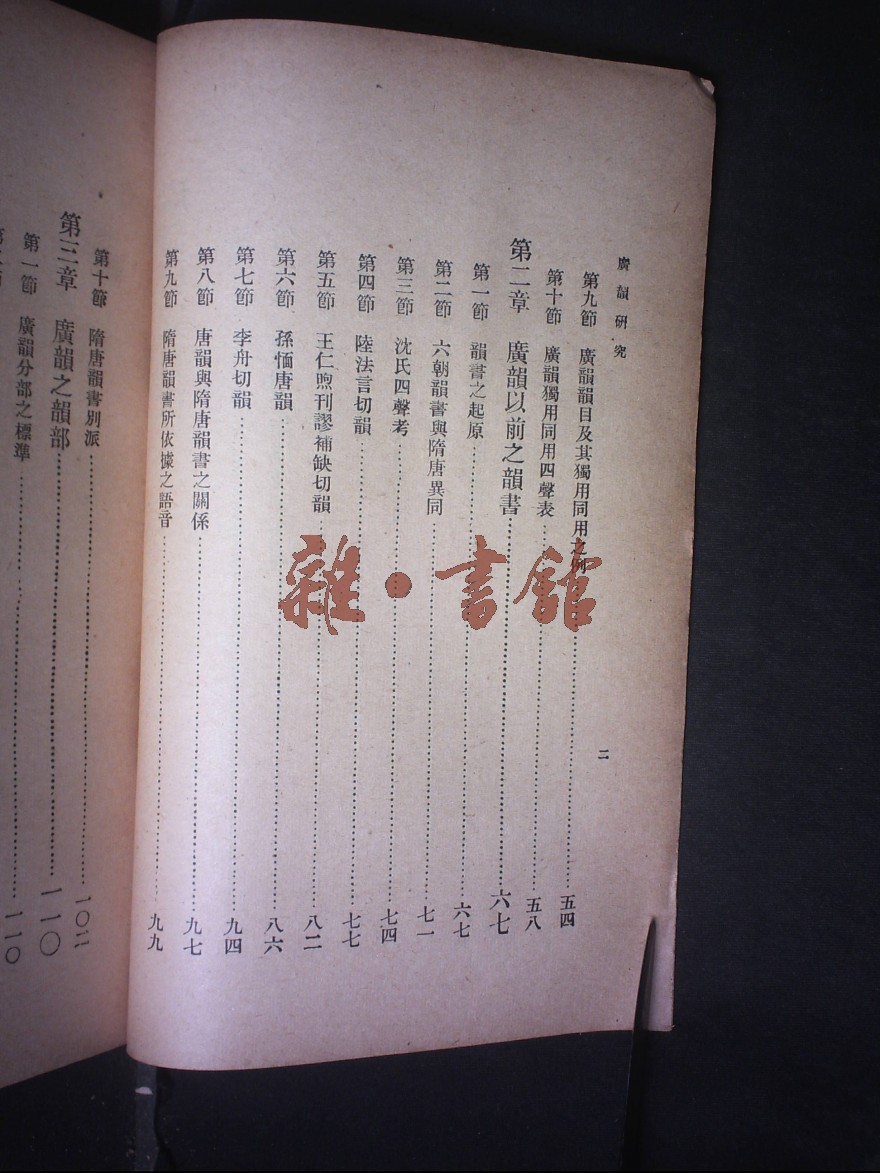 廣韻研究
二
第九節 廣韻韻目及其獨用同用之例……五四
第十節 廣韻獨用同用四聲表……五八
第二章 廣韻以前之韻書……六七
第一節 韻書之起原……六七
第二節 六朝韻書與隋唐異同……七一
第三節 沈氏四聲考……七四
第四節 陸法言切韻……七七
第五節 王仁煦刊謬補缺切韻……八二
第六節 孫愐唐韻……八六
第七節 李舟切韻……九四
第八節 唐韻與隋唐韻書之關係……九七
第九節 隋唐韻書所依據之語音……九九
第十節 隋唐韻書別派……一〇二
第三章 廣韻之韻部……一一〇
第一節 廣韻分部之標準……一一〇
雜·書館